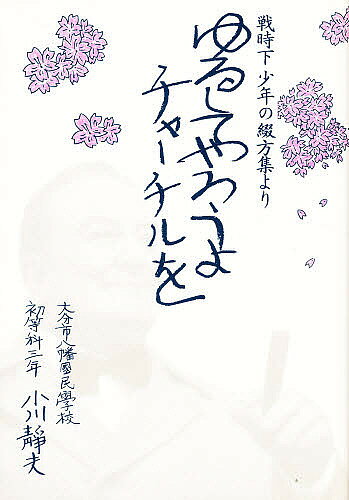 戦時下少年の綴方集より
ゆるしてやろうよ
チャーチルを
大分市八幡國民學校
初等科三年 小川靜夫